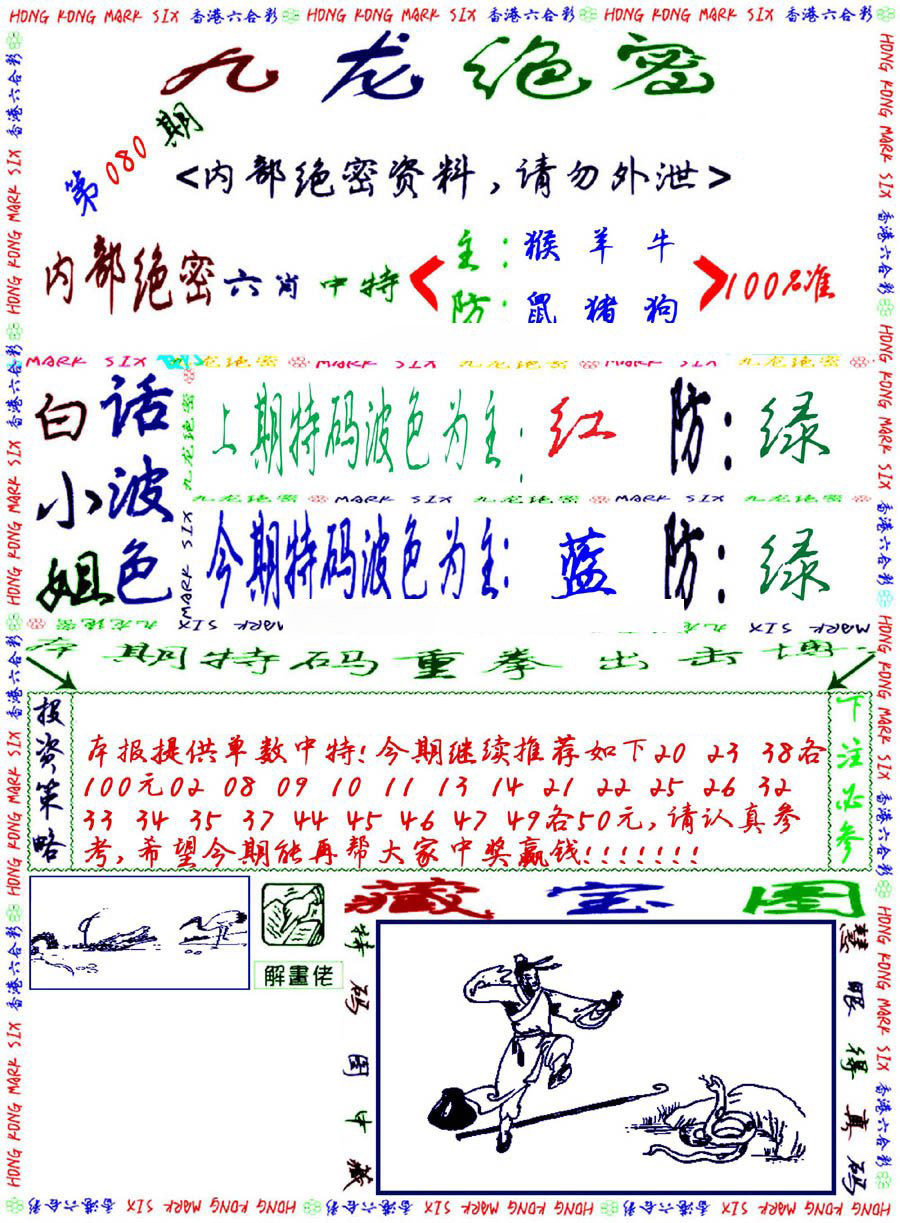 HONG KONG MARK SIX 香港六合彩 HONG KONG MARK SIX 香港六合彩 HONG KONG MARK SIX 香港六合彩
九龙绝密
第080期
<内部绝密资料,请勿外泄>
内部绝密六肖中特
主:猴羊牛
防:鼠猪狗
100%准
MARK SIX 九龙绝密 MARK SIX 九龙绝密 MARK SIX 九龙绝密
白小姐
话波色
上期特码波色为主:红 防:绿
九龙绝密 MARK SIX 九龙绝密 MARK SIX 九龙绝密
今期特码波色为主:蓝 防:绿
九龙绝密
MARK SIX
期特码重拳出击
投资策略
本报提供单数中特!今期继续推荐如下20 23 38各
100元02 08 09 10 11 13 14 21 22 25 26 32
33 34 35 37 44 45 46 47 49各50元,请认真参
考,希望今期能再帮大家中奖赢钱!!!!!!!
下注必参
解畫佬
藏宝图
特码图中藏
慧眼得真码
HONG KONG MARK SIX 香港六合彩 HONG KONG MARK SIX 香港六合彩 HONG KONG MARK SIX 香港六合彩